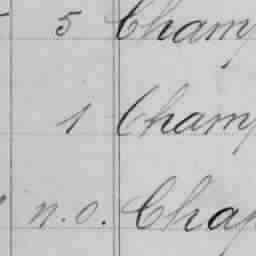 5 Champ
1 Champ
n.o. Chap